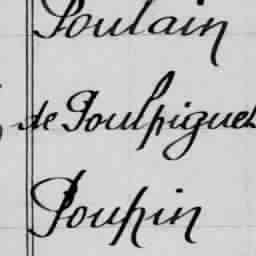 Poulain
de Poulpiquet
Poupin